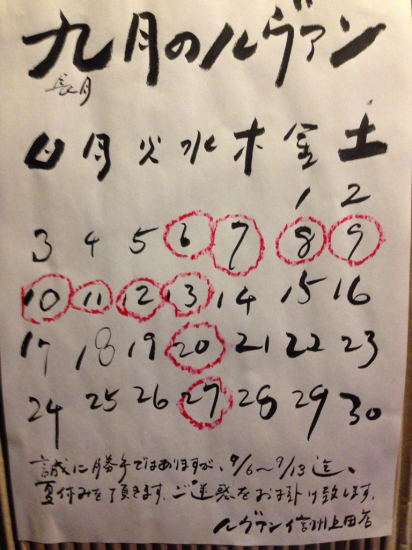 九月のルヴァン
長月
日 月 火 水 木 金 土
1 2
3 4 5 6 7 8 9
10 11 12 13 14 15 16
17 18 19 20 21 22 23
24 25 26 27 28 29 30
誠に勝手ではありますが、9/6〜9/13迄、
夏休みを頂きます。ご迷惑をお掛け致します。
ルヴァン信州上田店